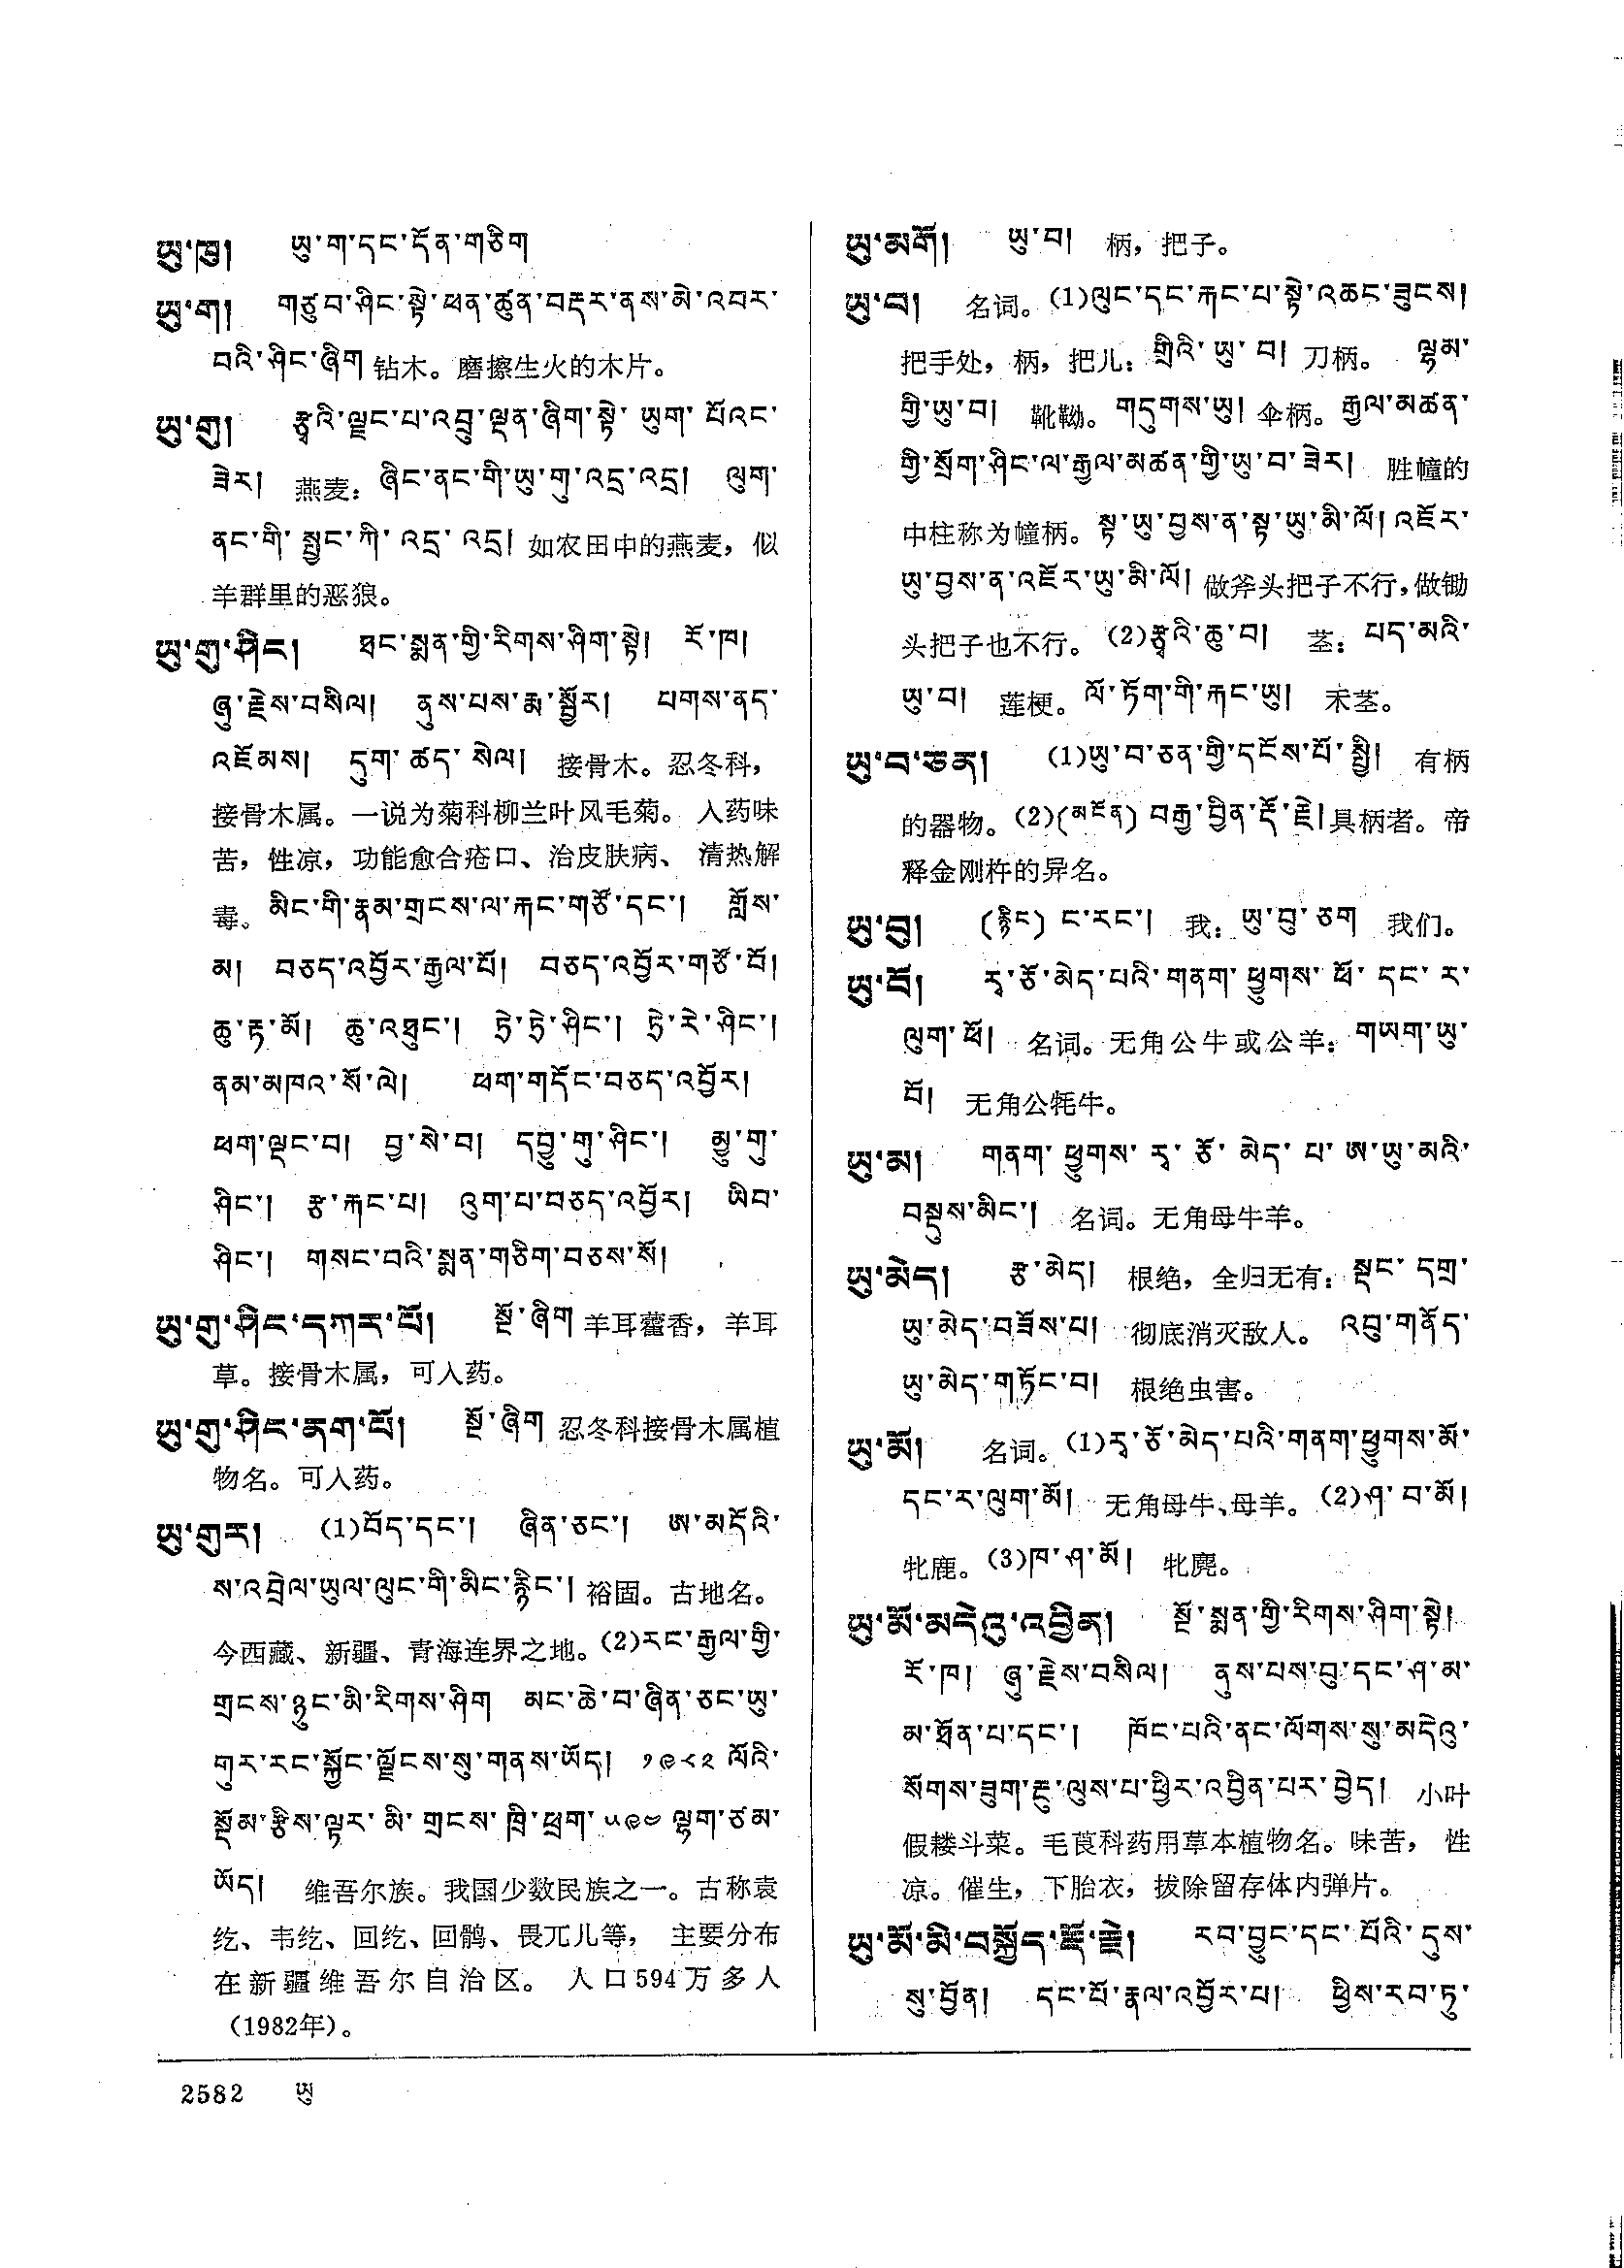 ཡུ་ཁུ།  ཡུ་ག་དང་དོན་གཅིག
ཡུ་ག།  གཙུབ་ཤིང་སྟེ་ཕན་ཚུན་བརྡར་ནས་མེ་འབར་
བའི་ཤིང་ཞིག 钻木。磨擦生火的木片。
ཡུ་གུ།  རྩྭའི་ལྗང་པ་འབྲུ་ལྡན་ཞིག་སྟེ་ ཡུག་ པོའང་
ཟེར།  燕麦：ཞིང་ནང་གི་ཡུ་གུ་འདྲ་འདྲ།  ལུག་
ནང་གི་ སྤྱང་ཀི་ འདྲ་ འདྲ། 如农田中的燕麦，似
羊群里的恶狼。
ཡུ་གུ་ཤིང།  ཐང་སྨན་གྱི་རིགས་ཤིག་སྟེ།  རོ་ཁ།
ཞུ་རྗེས་བསིལ།  ནུས་པས་རྨ་སྦྱོར།  པགས་ནད་
འཇོམས།  དུག་ ཚད་ སེལ།  接骨木。忍冬科，
接骨木属。一说为菊科柳兰叶风毛菊。入药味
苦，性凉，功能愈合疮口、治皮肤病、清热解
毒。མིང་གི་རྣམ་གྲངས་ལ་རྐང་གཙོ་དང་།  གློས་
མ།  བཅད་འབྱོར་རྒྱལ་པོ།  བཅད་འབྱོར་གཙོ་བོ།
ཆུ་རྟ་མོ།  ཆུ་འཐུང་།  ཏྲེ་ཏྲེ་ཤིང་།  ཏྲེ་རེ་ཤིང་།
ནམ་མཁའ་སོ་ལེ།  ཕག་གདོང་བཅད་འབྱོར།
ཕག་ལྡང་བ།  བྱ་སེ་བ།  དབྱུ་གུ་ཤིང་།  མྱུ་གུ་
ཤིང་།  རྩ་རྐང་པ།  འུག་པ་བཅད་འབྱོར།  ཡིབ་
ཤིང་།  གསང་བའི་སྨན་གཅིག་བཅས་སོ།
ཡུ་གུ་ཤིང་དཀར་པོ།  སྔོ་ཞིག 羊耳藿香，羊耳
草。接骨木属，可入药。
ཡུ་གུ་ཤིང་ནག་པོ།  སྔོ་ཞིག 忍冬科接骨木属植
物名。可入药。
ཡུ་གུར།  (1)བོད་དང་།  ཞིན་ཅང་།  ཨ་མདོའི་
ས་འབྲེལ་ཡུལ་ལུང་གི་མིང་རྙིང་། 裕固。古地名。
今西藏、新疆、青海连界之地。(2)རང་རྒྱལ་གྱི་
གྲངས་ཉུང་མི་རིགས་ཤིག  མང་ཆེ་བ་ཞིན་ཅང་ཡུ་
གུར་རང་སྐྱོང་ལྗོངས་སུ་གནས་ཡོད།  ༡༩༨༢ ལོའི་
སྡོམ་རྩིས་ལྟར་ མི་ གྲངས་ ཁྲི་ཕྲག་ ༥༩༤ ལྷག་ཙམ་
ཡོད།  维吾尔族。我国少数民族之一。古称袁
纥、韦纥、回纥、回鹘、畏兀儿等，主要分布
在新疆维吾尔自治区。人口594万多人
（1982年）。
ཡུ་མགོ།  ཡུ་བ།  柄，把子。
ཡུ་བ།  名词。(1)ལུང་དང་རྐང་པ་སྟེ་འཆང་ཟུངས།
把手处，柄，把儿：གྲིའི་ ཡུ་ བ།  刀柄。 ལྷམ་
གྱི་ཡུ་བ།  靴靿。གདུགས་ཡུ།  伞柄。རྒྱལ་མཚན་
གྱི་སྲོག་ཤིང་ལ་རྒྱལ་མཚན་གྱི་ཡུ་བ་ཟེར།  胜幢的
中柱称为幢柄。སྟ་ཡུ་བྱས་ན་སྟ་ཡུ་མི་ལོ། འཇོར་
ཡུ་བྱས་ན་འཇོར་ཡུ་མི་ལོ། 做斧头把子不行，做锄
头把子也不行。(2)རྩྭའི་ཆུ་བ།  茎：པད་མའི་
ཡུ་བ།  莲梗。ལོ་ཏོག་གི་རྐང་ཡུ།  禾茎。
ཡུ་བ་ཅན།  (1)ཡུ་བ་ཅན་གྱི་དངོས་པོ་སྤྱི།  有柄
的器物。(2)(མངོན) བརྒྱ་བྱིན་རྡོ་རྗེ། 具柄者。帝
释金刚杵的异名。
ཡུ་བུ།  (རྙིང) ང་རང་།  我：ཡུ་བུ་ཅག  我们。
ཡུ་བོ།  རྭ་ཅོ་མེད་པའི་གནག་ ཕྱུགས་ ཕོ་ དང་ ར་
ལུག་ ཕོ།  名词。无角公牛或公羊：གཡག་ཡུ་
བོ།  无角公牦牛。
ཡུ་མ།  གནག་ ཕྱུགས་ རྭ་ ཅོ་ མེད་ པ་ ཨ་ཡུ་མའི་
བསྡུས་མིང་།  名词。无角母牛羊。
ཡུ་མེད།  རྩ་མེད།  根绝，全归无有：སྡང་ དགྲ་
ཡུ་མེད་བཟོས་པ།  彻底消灭敌人。 འབུ་གནོད་
ཡུ་མེད་གཏོང་བ།  根绝虫害。
ཡུ་མོ།  名词。(1)རྭ་ཅོ་མེད་པའི་གནག་ཕྱུགས་མོ་
དང་ར་ལུག་མོ།  无角母牛、母羊。(2)ཤ་བ་མོ།
牝鹿。(3)ཁ་ཤ་མོ།  牝麂。
ཡུ་མོ་མདེའུ་འབྱིན།  སྔོ་སྨན་གྱི་རིགས་ཤིག་སྟེ།
རོ་ཁ།  ཞུ་རྗེས་བསིལ།  ནུས་པས་བུ་དང་ཤ་མ་
མ་ཐོན་པ་དང་།  ཁོང་པའི་ནང་ལོགས་སུ་མདེའུ་
སོགས་ཟུག་རྔུ་ལུས་པ་ཕྱིར་འབྱིན་པར་བྱེད།  小叶
假耧斗菜。毛茛科药用草本植物名。味苦，性
凉。催生，下胎衣，拔除留存体内弹片。
ཡུ་མོ་མི་བསྐྱོད་རྡོ་རྗེ།  རབ་བྱུང་དང་ པོའི་ དུས་
སུ་བྱོན།  དང་པོ་རྣལ་འབྱོར་པ།  ཕྱིས་རབ་ཏུ་
2582  ཡུ